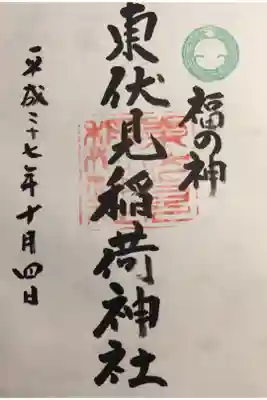 福の神
東伏見稲荷神社
平成二十七年十月四日